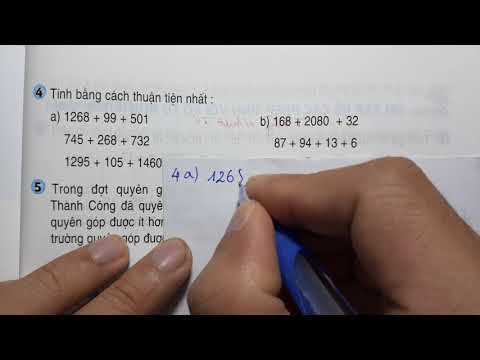 4 Tính bằng cách thuận tiện nhất :
a) 1268 + 99 + 501
b) 168 + 2080 + 32
745 + 268 + 732
87 + 94 + 13 + 6
1295 + 105 + 1460
4a) 126
5 Trong đợt quyên g
Thành Công đã quyê
quyên góp được ít hơn
trường quyên góp được